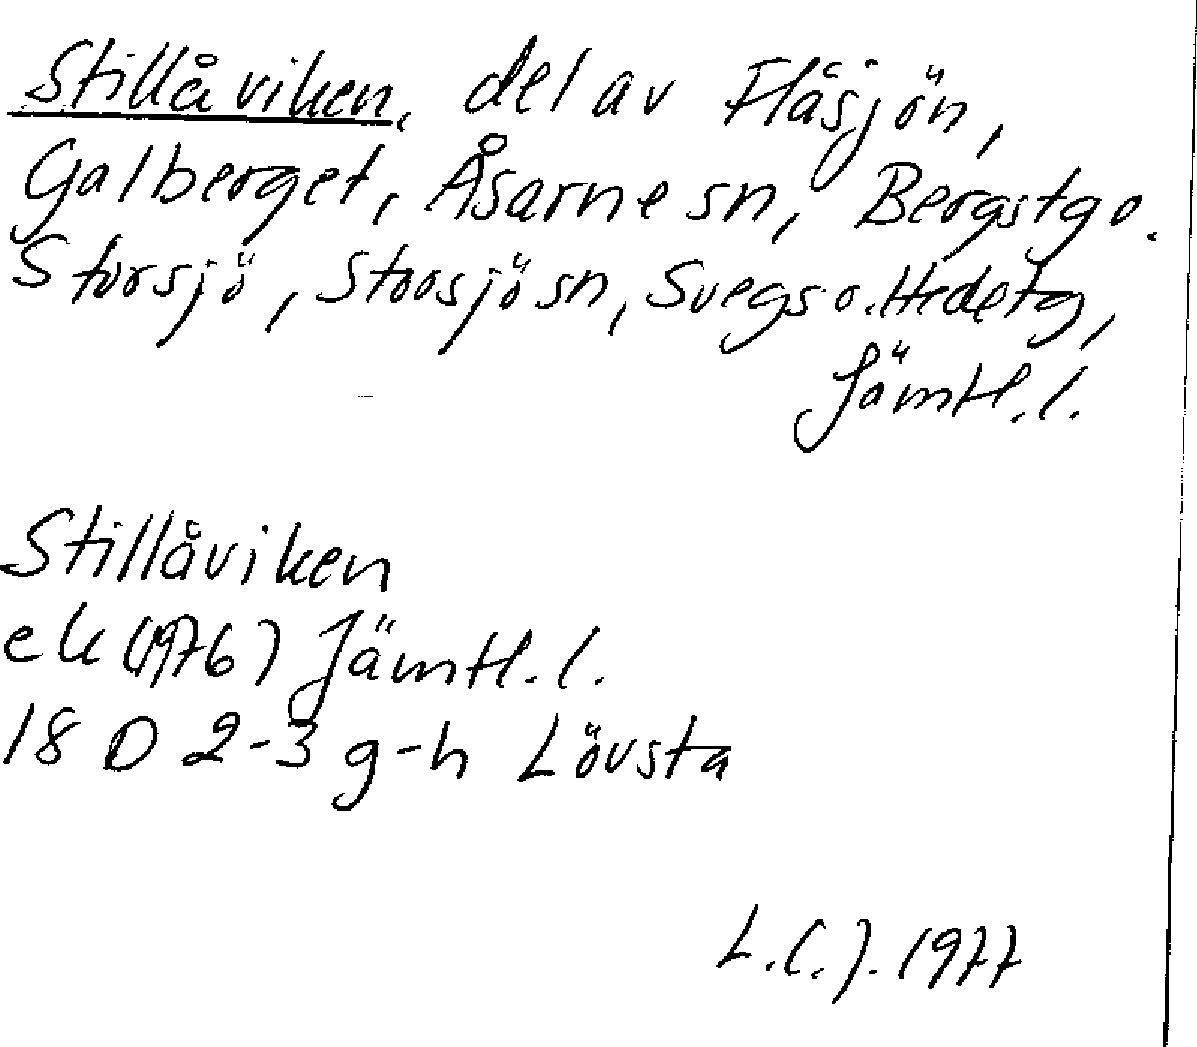 Stillåviken, del av Flåsjön,
Galberget, Åsarne sn, Bergstg o.
Storsjö, Storsjö sn, Svegs o. Hedetg,
Jämtl. l.
Stillåviken
ek (1976) Jämtl. l.
18 D 2-3 g-h Lövsta
L.C.J. 1977